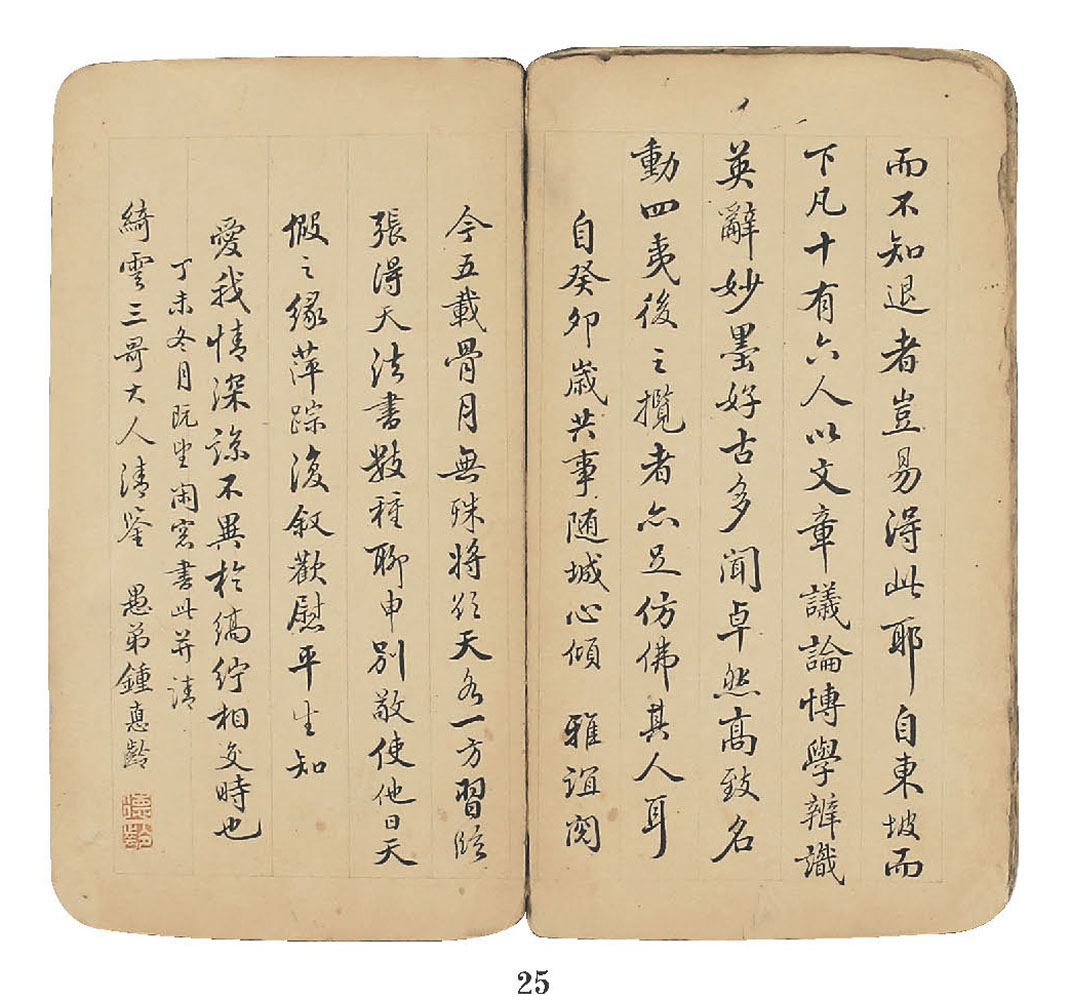 而不知退者豈易得此耶自東坡而
下凡十有六人以文章議論博學辨識
英辭妙墨好古多聞卓然高致名
動四夷後之攬者亦足仿佛其人耳
自癸卯歲共事随城心傾雅誼閱
今五載骨月無殊將欲天各一方習臨
張得天法書數種聊申別敬使他日天
假之緣萍踪復叙歡慰平生知
愛我情深諒不異於縞紵相交時也
丁未冬月既望閑窓書此并請
綺雲三哥大人清鑒 愚弟鍾惪齡
25